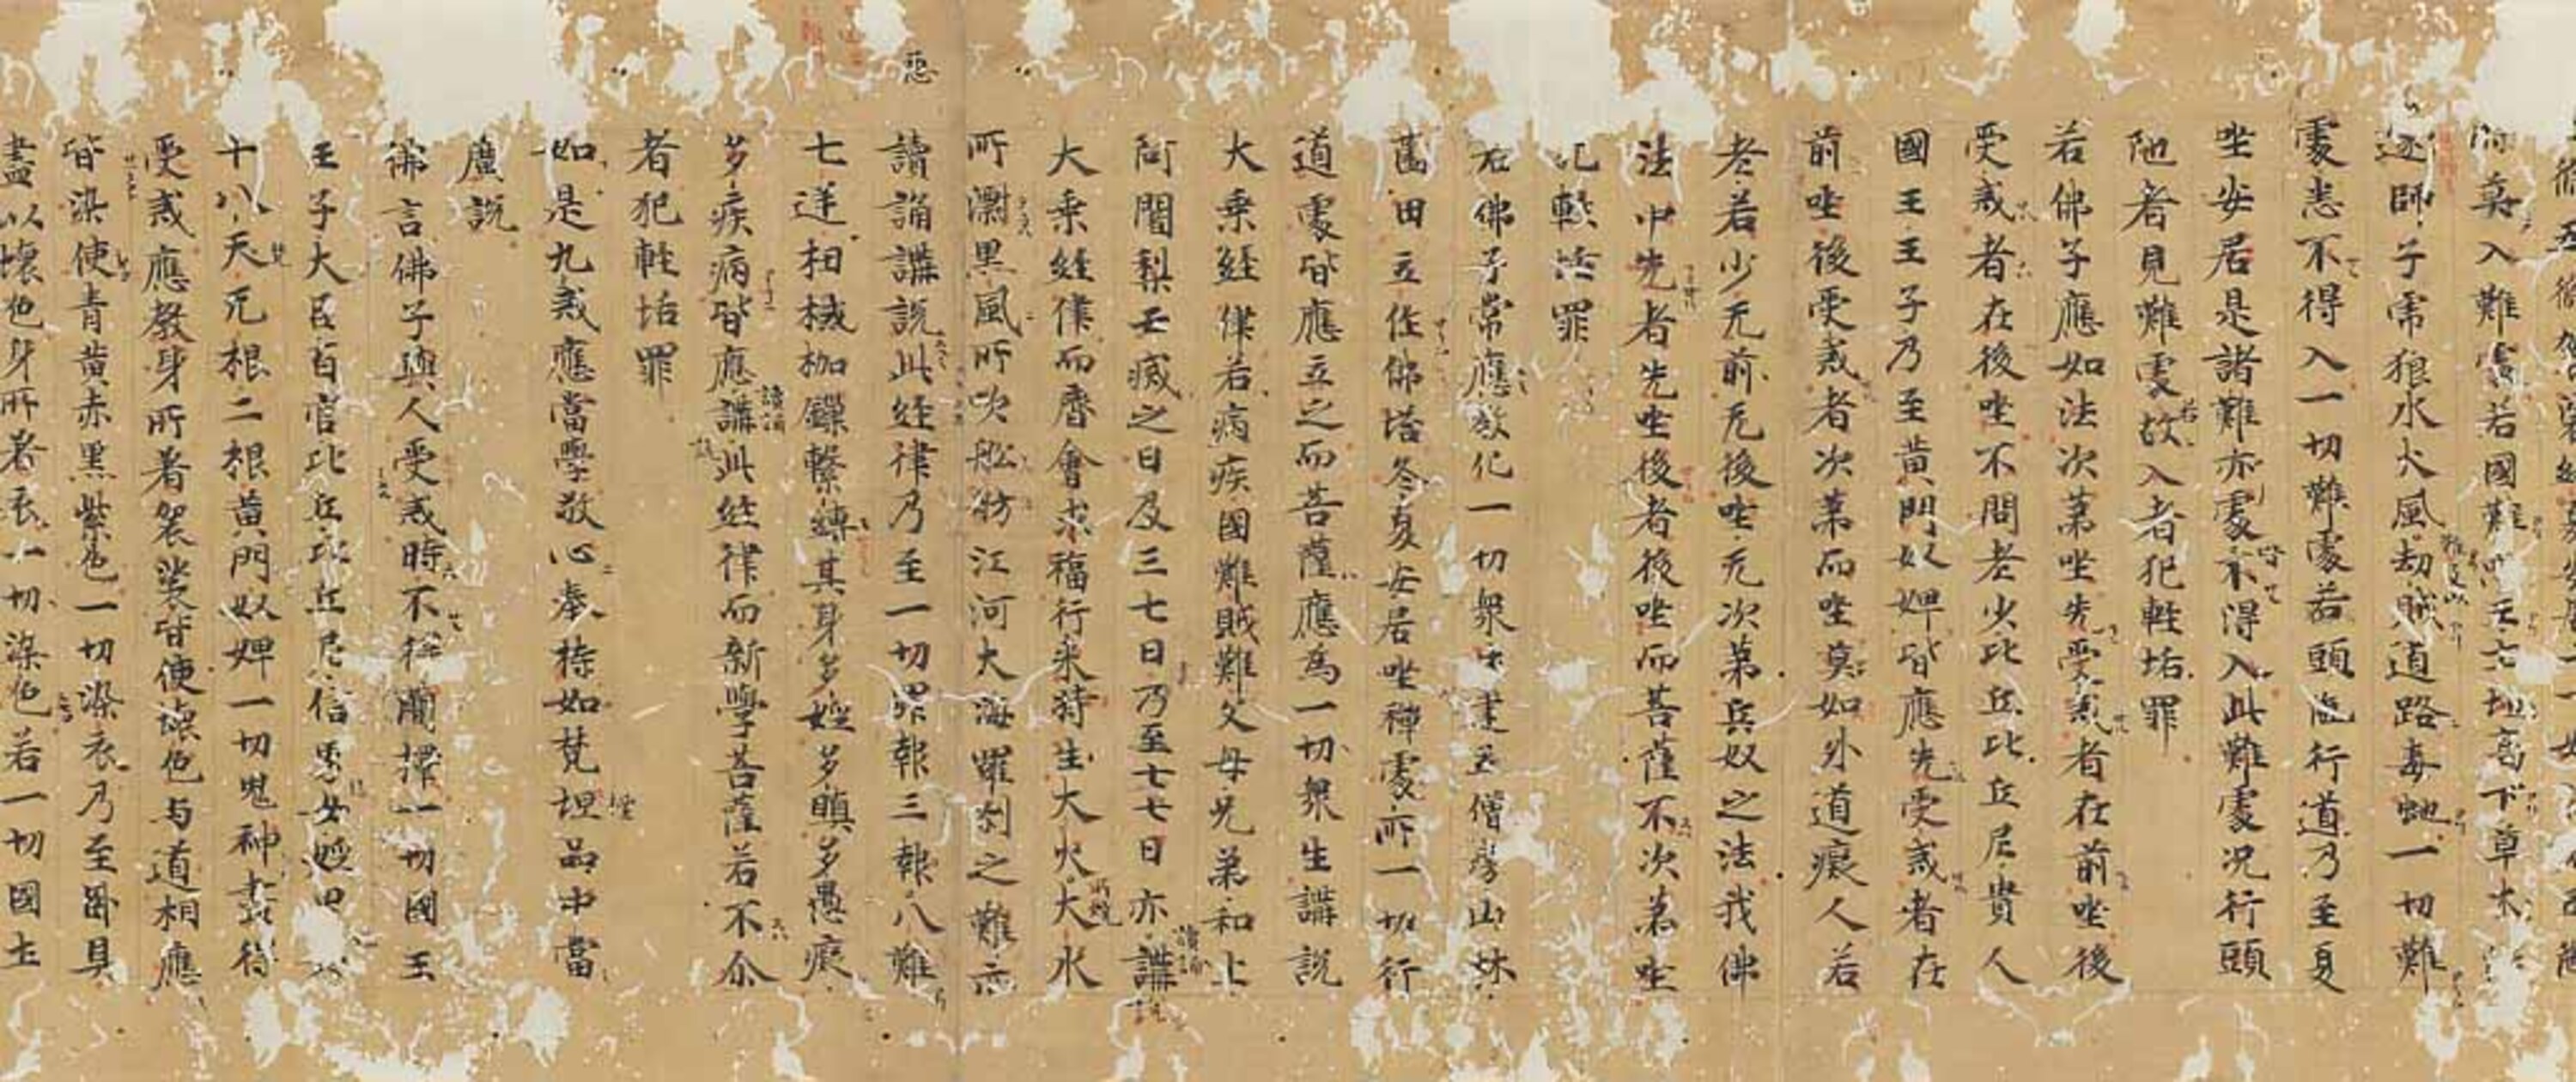 難處若國難
逐師子席狼水火風劫賊道路毒虵一切難
處悉不得入一切難處若頭陁行道乃至夏
坐安居是諸難亦處不得入此難處況行頭
陁者見難處故入者犯輕垢罪
若佛子應如法次第坐先受戒者在前坐後
受戒者在後坐不問老少比丘比丘尼貴人
國王王子乃至黃門奴婢皆應先受戒者在
前坐後受戒者次第而坐莫如外道癡人若
老若少无前无後坐无次第兵奴之法我佛
法中先者先坐後者後坐而菩薩不次第坐
犯輕垢罪
若佛子常應教化一切衆生建立僧房山林
薗田立作佛塔冬夏安居坐禪處所一切行
道處皆應立之而菩薩應爲一切衆生講說
大乗經律若病疾國難賊難父母兄弟和上
阿闍梨亡滅之日及三七日乃至七七日亦講
大乗經律而齋會求福行來持生大火大水
所漂黑風所吹舩舫江河大海羅刹之難亦
讀誦講說此經律乃至一切罪報三報八難
七逆杻械枷鏁繫縛其身多婬多瞋多愚癡
多疾病皆應講此經律而新學菩薩若不尒
者犯輕垢罪
如是九戒應當學敬心奉持如梵坦品中當
廣說
佛言佛子與人受戒時不得蘭擇一切國王
王子大臣百官比丘比丘尼信男女婬男
十八天无根二根黃門奴婢一切鬼神盡得
受戒應教身所著袈裟皆使壞色与道相應
皆染使青黃赤黑紫色一切染衣乃至卧具
盡以壞色身所著衣一切染色若一切國土